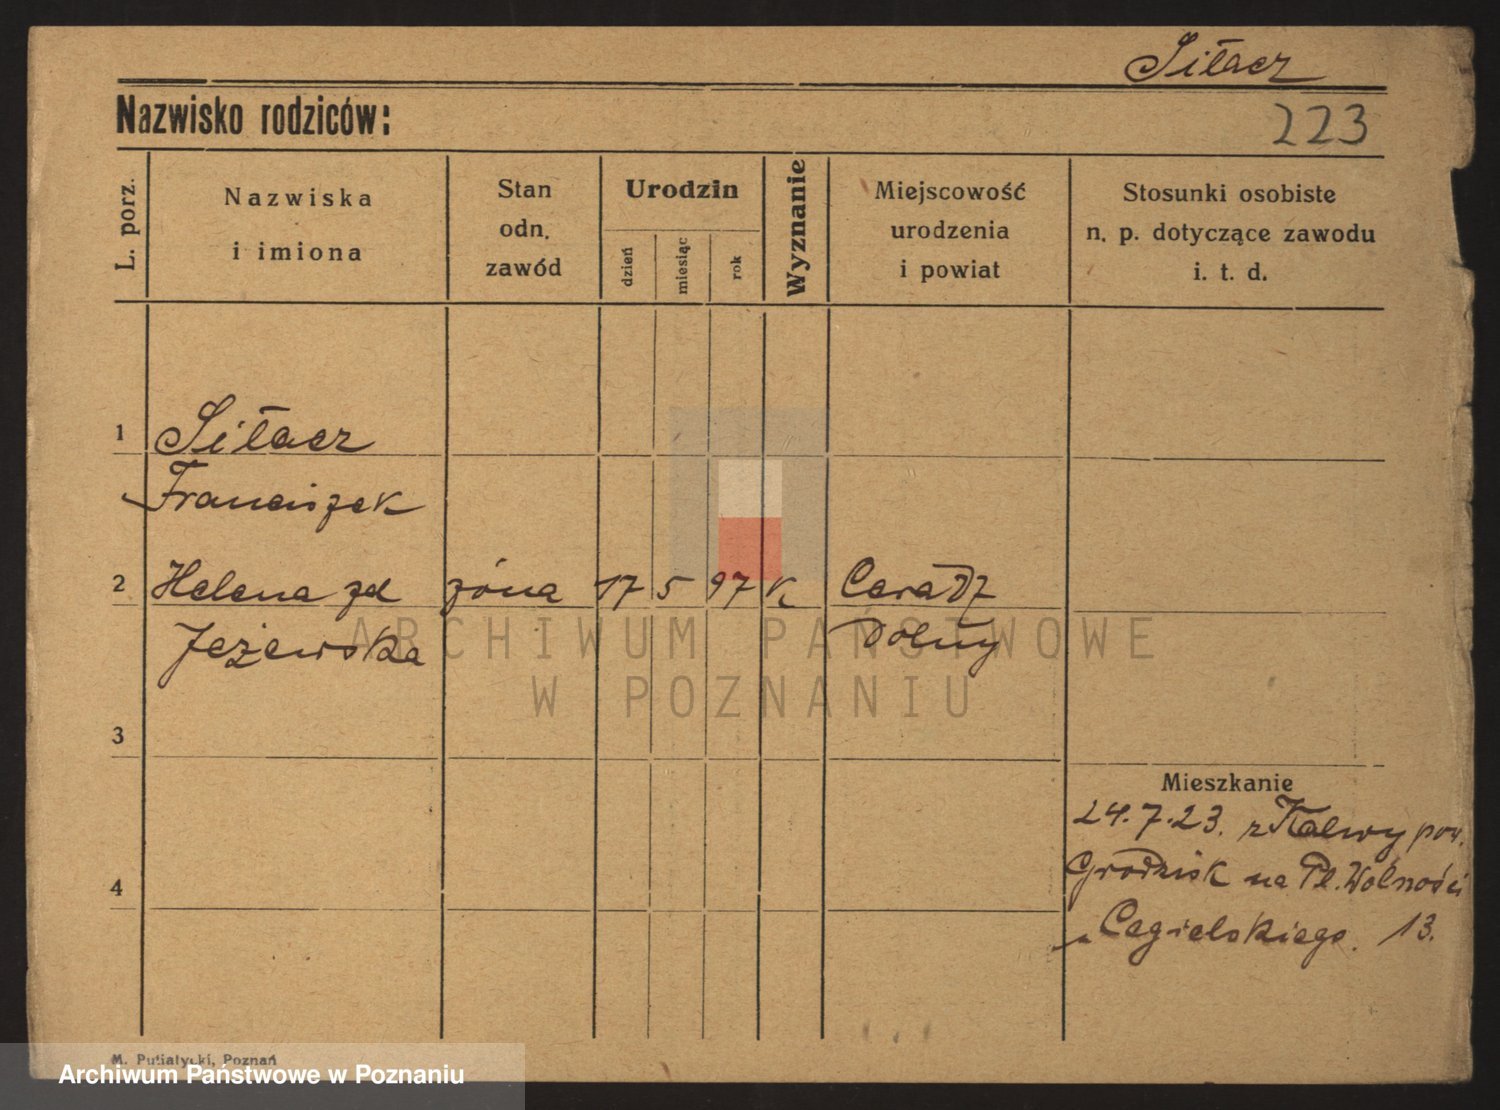 Siłacz
Nazwisko rodziców:
223
L. porz.
Nazwiska
i imiona
Stan
odn.
zawód
Urodzin
dzień
miesiąc
rok
Wyznanie
Miejscowość
urodzenia
i powiat
Stosunki osobiste
n. p. dotyczące zawodu
i. t. d.
1 Siłacz
Franciszek
2 Helena zd żóna 17 5 97 k Ceradz
Jeżewska Dolny
3
Mieszkanie
24.7.23. z Kalwy pow.
4
Grodzisk na Pl. Wolności
u Cegielskiego. 13.
ARCHIWUM PAŃSTWOWE
W POZNANIU
M. Putiatycki, Poznań
Archiwum Państwowe w Poznaniu